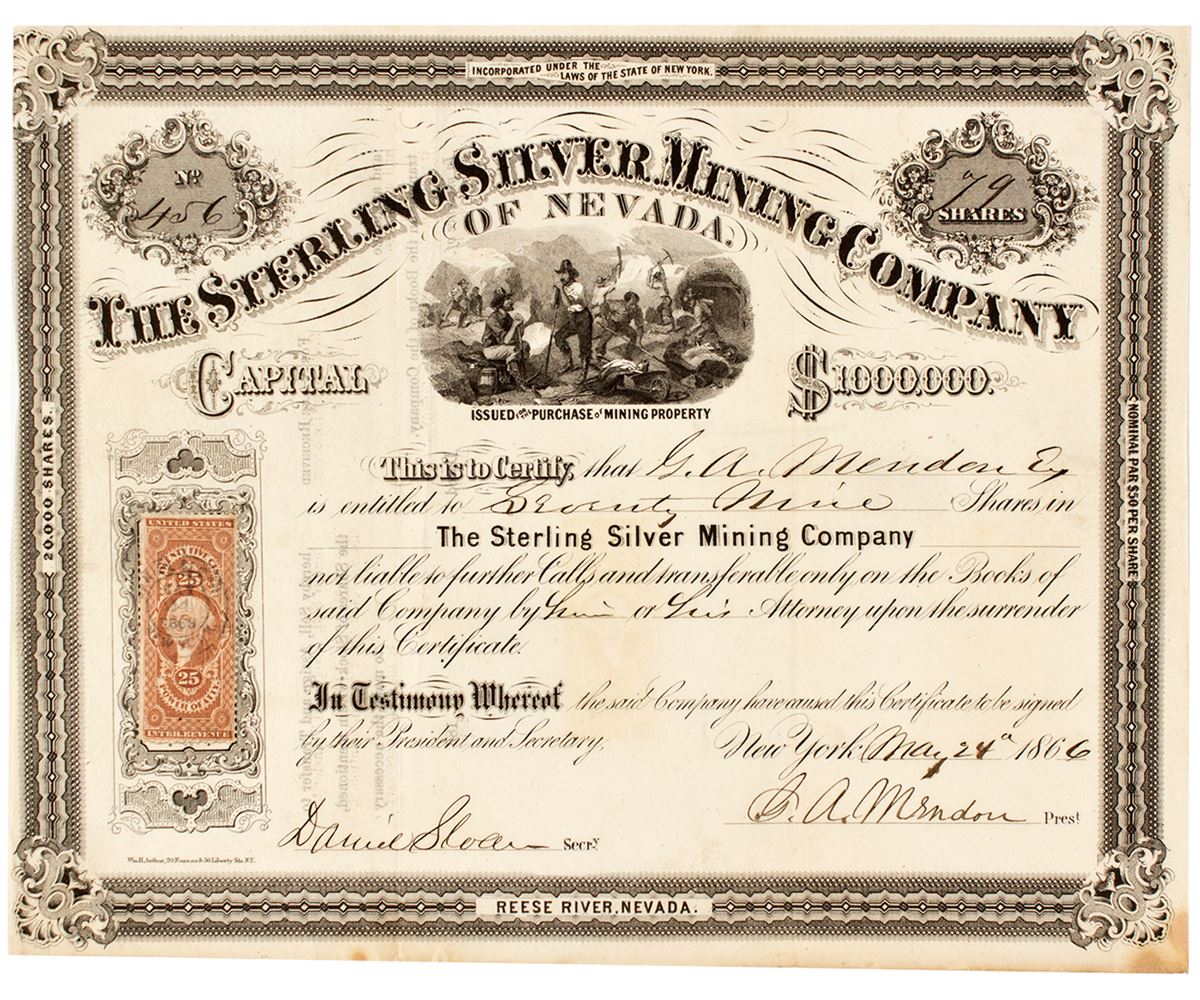 INCORPORATED UNDER THE
LAWS OF THE STATE OF NEW YORK.
Nº
456
79
SHARES
THE STERLING SILVER MINING COMPANY
OF NEVADA.
CAPITAL
$1000,000.
ISSUED FOR THE PURCHASE of MINING PROPERTY
20,000 SHARES.
NOMINAL PAR $50 PER SHARE
This is to Certify, that G. A. Mendon Esq
is entitled to Seventy Nine Shares in
The Sterling Silver Mining Company
not liable to further Calls and transferable only on the Books of
said Company by him or his Attorney upon the surrender
of this Certificate.
In Testimony Whereof the said Company have caused this Certificate to be signed
by their President and Secretary,
New York May 24th 1866
G. A. Mendon Prest
Daniel Sloan Secry
UNITED STATES
TWENTY FIVE CTS
25
25
POWER OF ATTY
INTER. REVENUE
Wm. H. Arthur, 39 Nassau & 56 Liberty Sts. N.Y.
REESE RIVER, NEVADA.